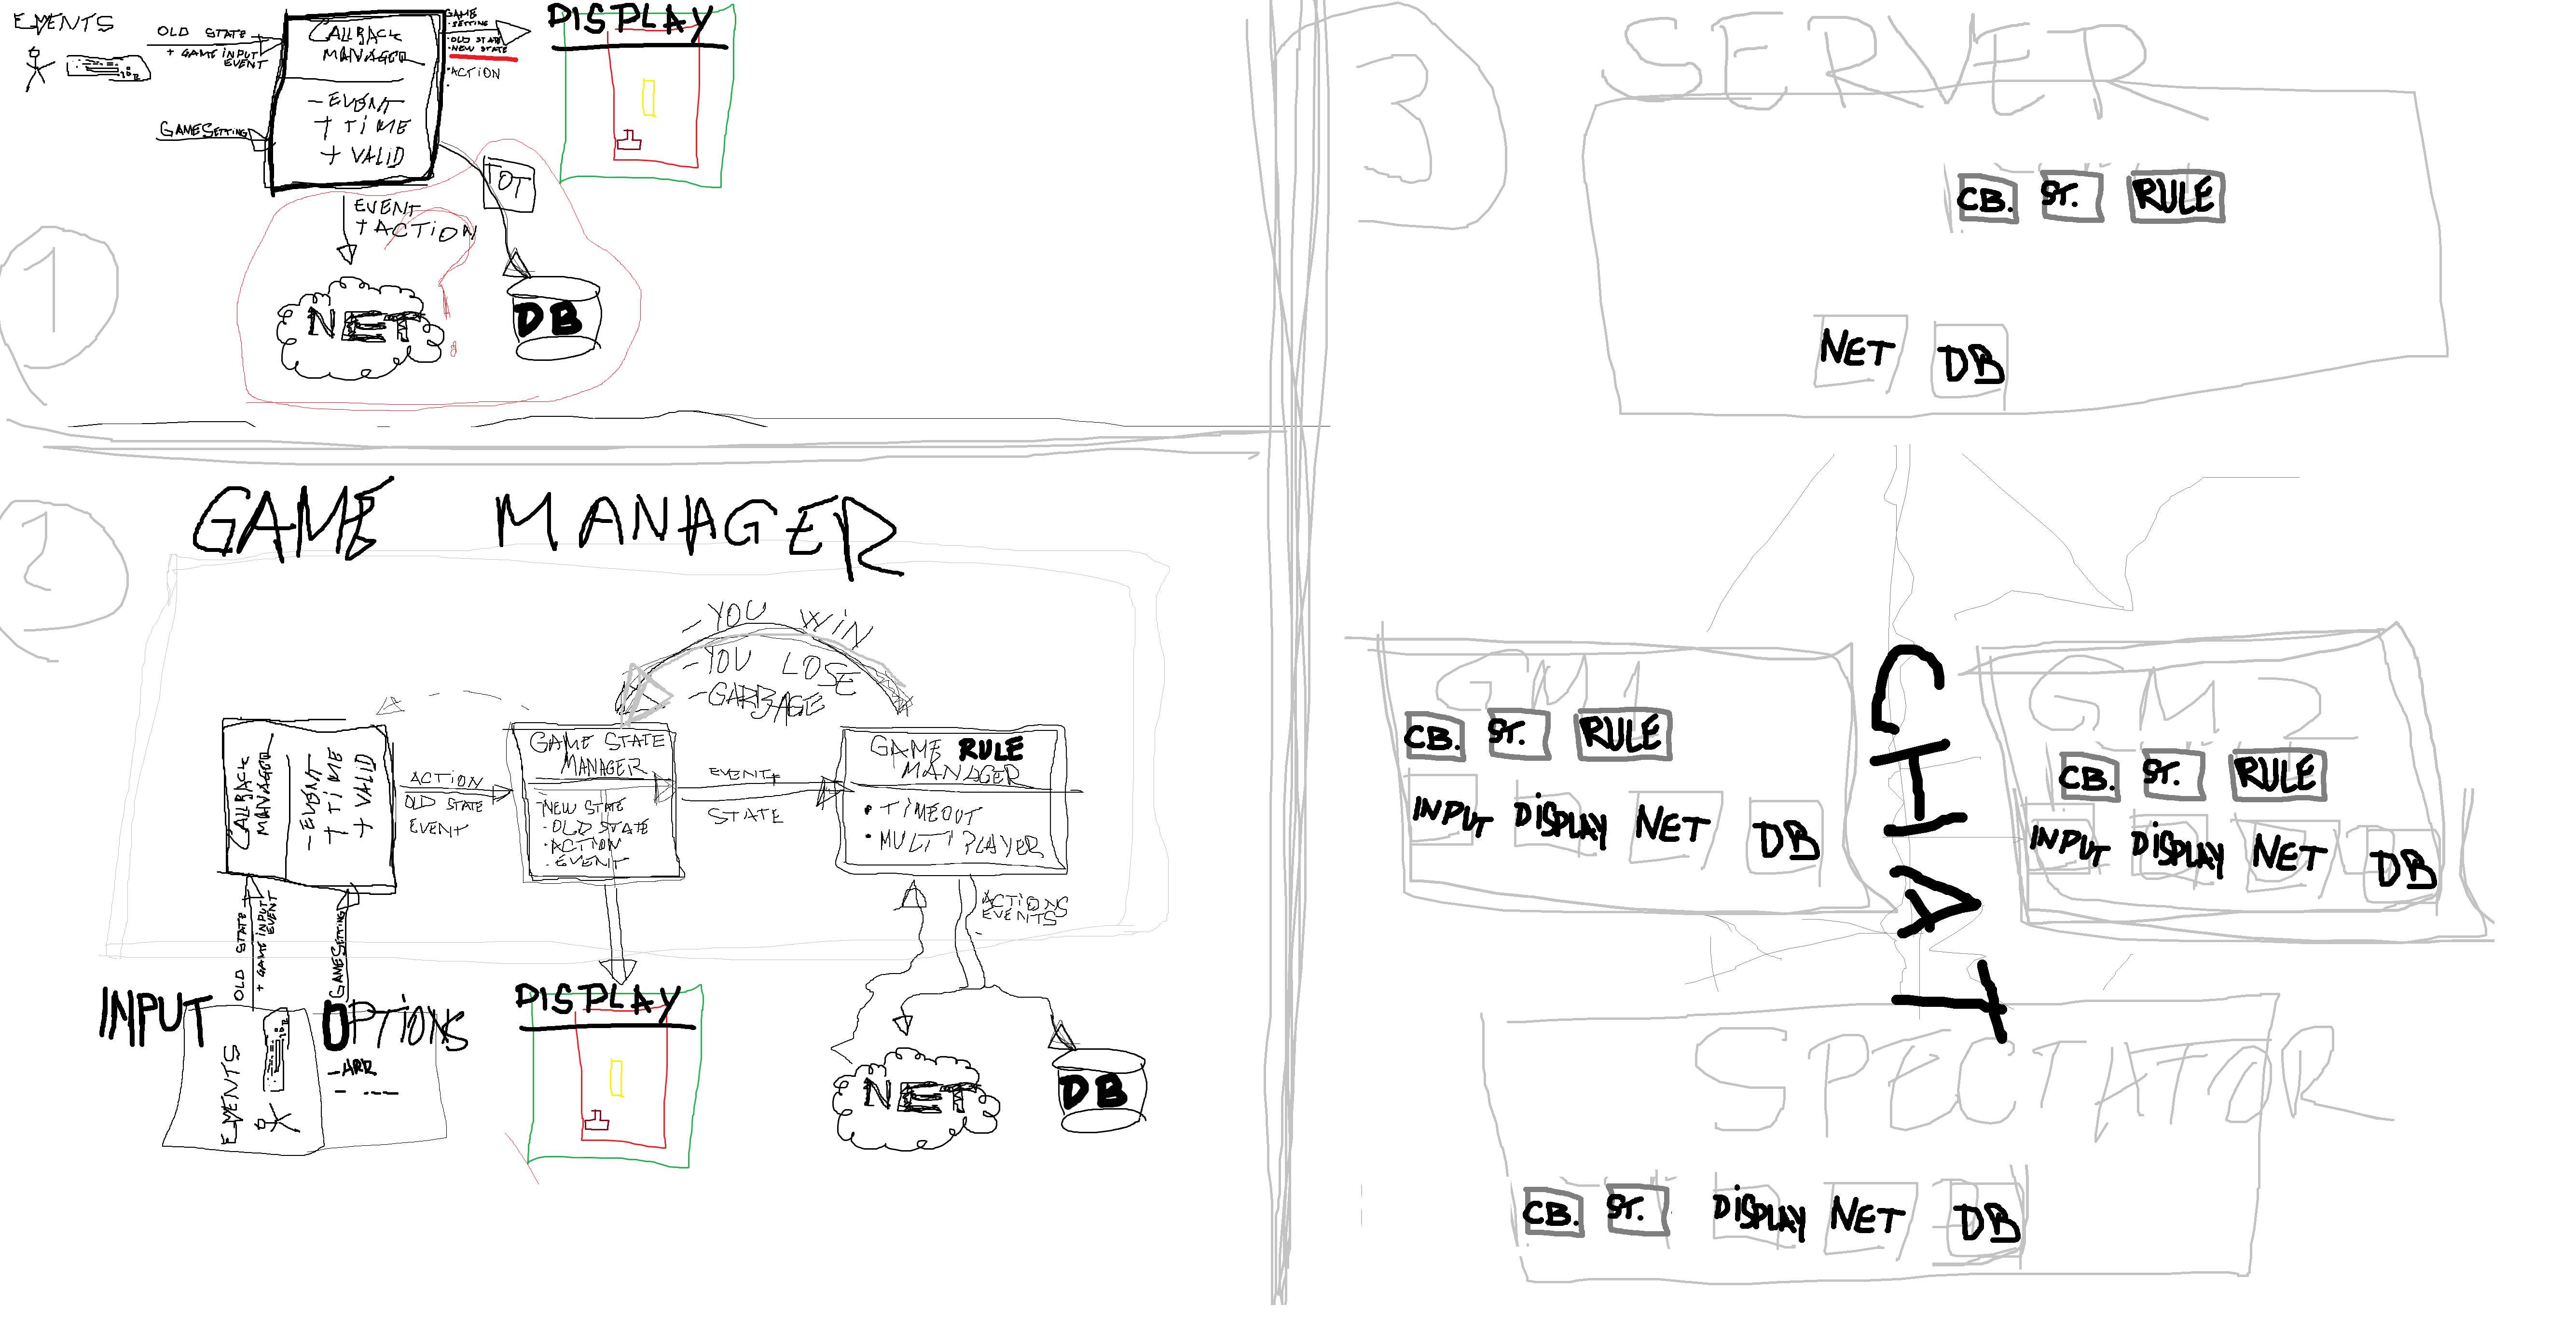 EVENTS
OLD STATE
+ GAME INPUT
EVENT
GAME SETTING
CALLBACK
MANAGER
- EVENT
+ TIME
+ VALID
GAME
- SETTING
- OLD STATE
- NEW STATE
- ACTION
DISPLAY
EVENT
+ ACTION
TOT
?
NET
DB
1
2
GAME MANAGER
- YOU WIN
- YOU LOSE
- GARBAGE
CALLBACK
MANAGER
- EVENT
+ TIME
+ VALID
ACTION
OLD STATE
EVENT
GAME STATE
MANAGER
NEW STATE
- OLD STATE
- ACTION
- EVENT
EVENT+
STATE
GAME RULE
MANAGER
• TIMEOUT
• MULTI PLAYER
OLD STATE
+ GAME INPUT
EVENT
GAME SETTING
ACTIONS
EVENTS
INPUT
EVENTS
OPTIONS
- ARR
- ---
DISPLAY
NET
DB
3
SERVER
CB. ST. RULE
NET DB
GM1
CB. ST. RULE
INPUT DISPLAY NET DB
CHAT
GM2
CB. ST. RULE
INPUT DISPLAY NET DB
SPECTATOR
CB. ST. DISPLAY NET DB